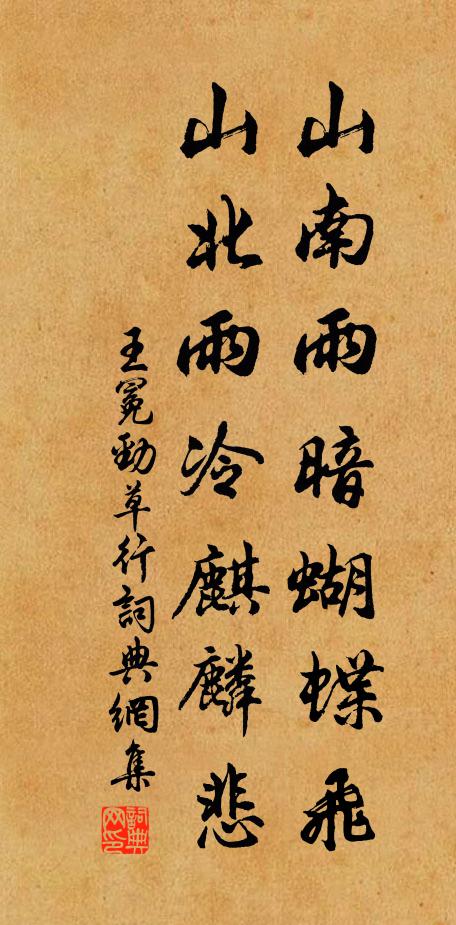 山南雨暗蝴蝶飛
山北雨冷麒麟悲
王冕勁草行詞典網集
詞典網印